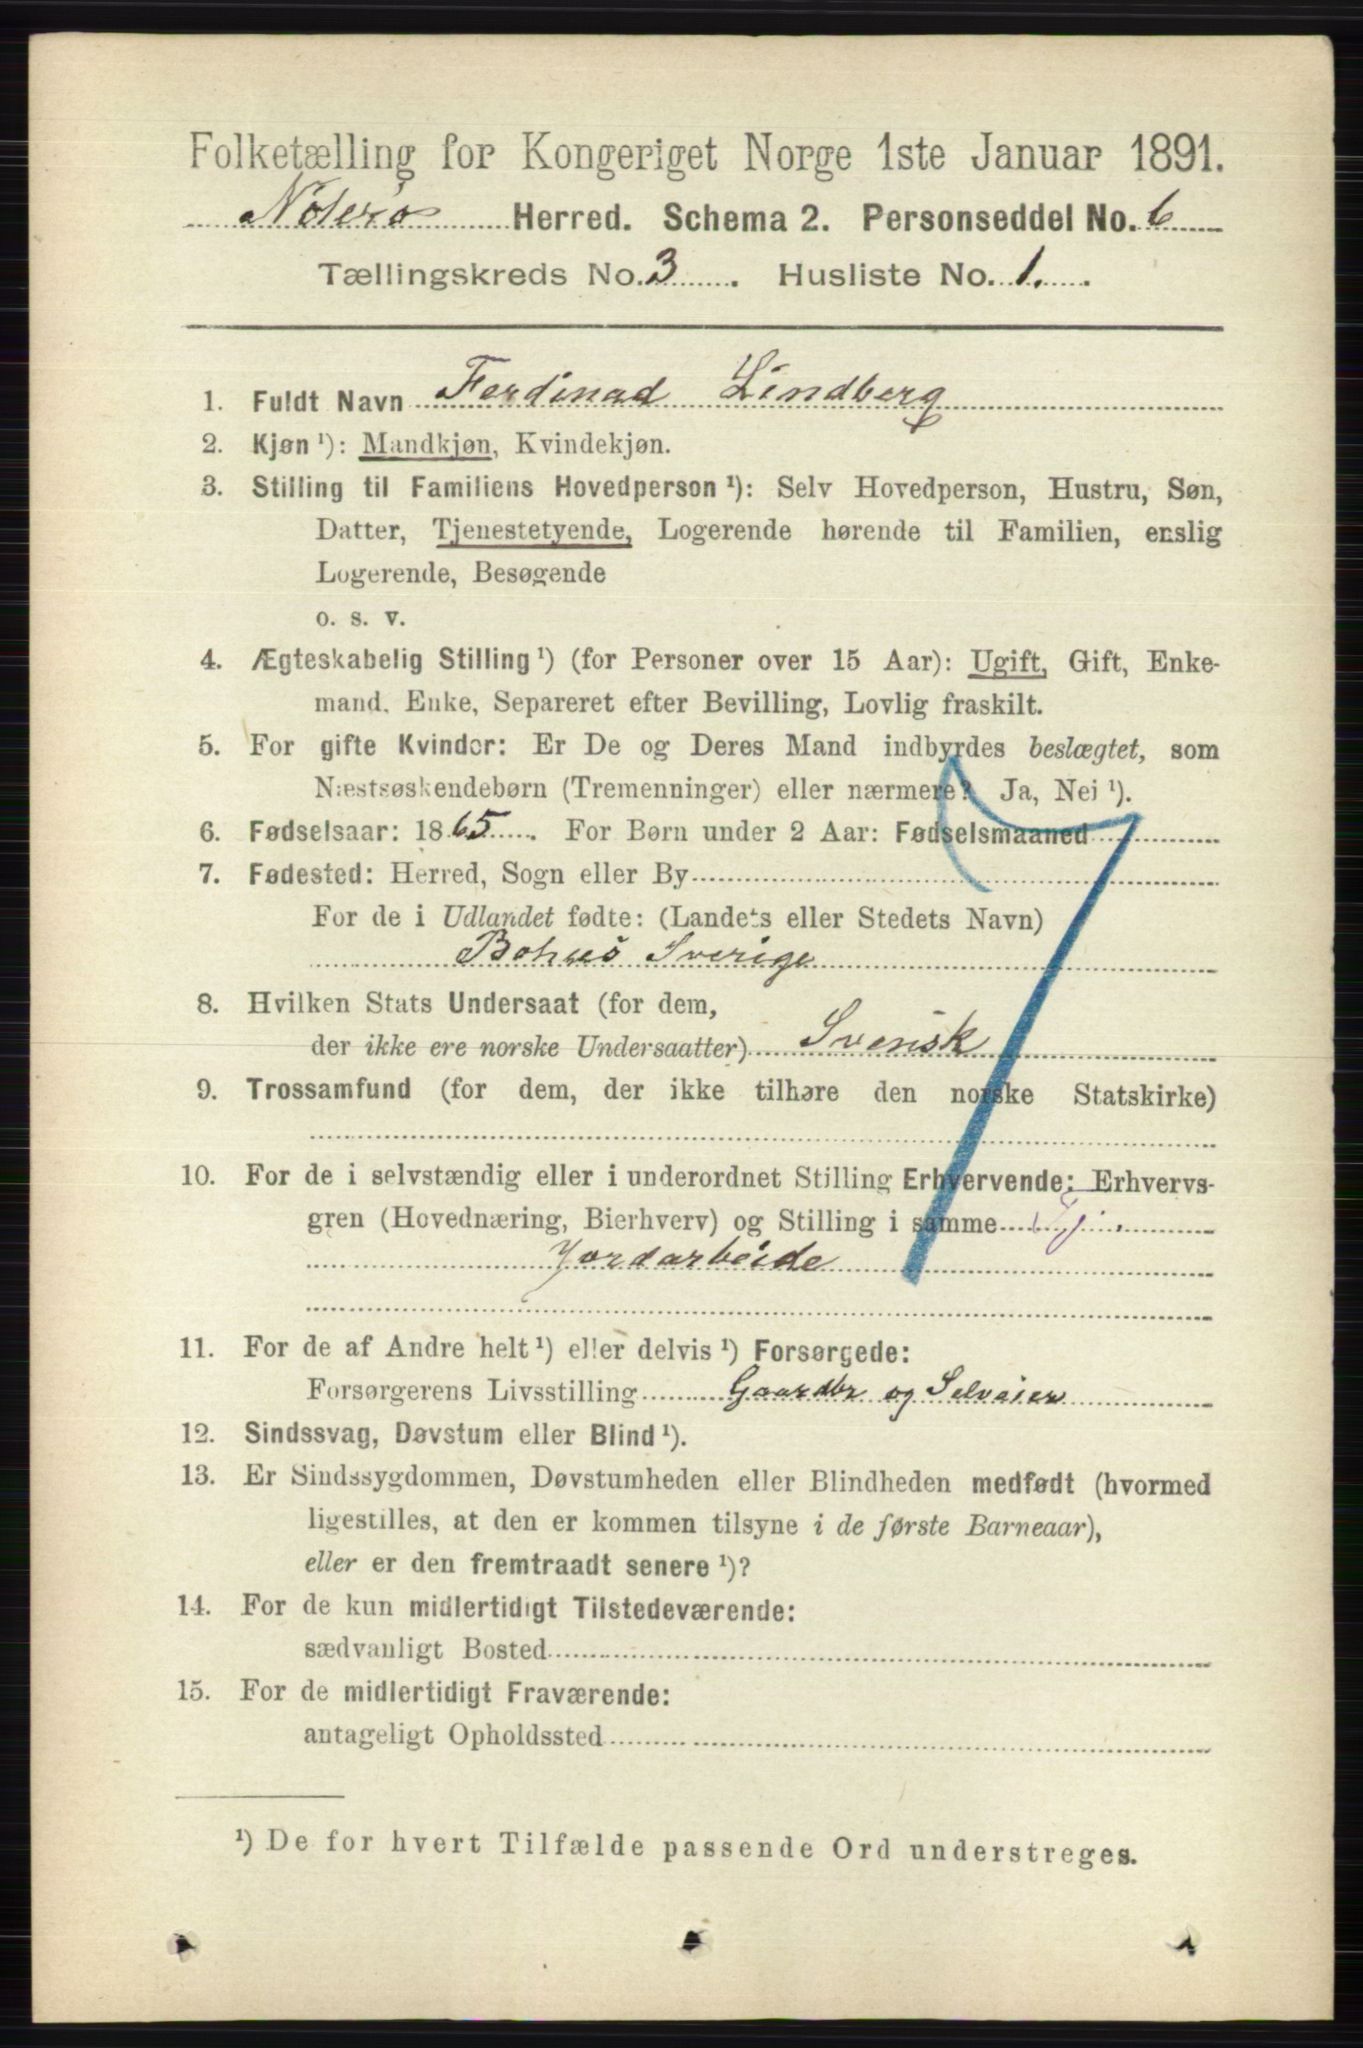 Folketælling for Kongeriget Norge 1ste Januar 1891.
Nøterø Herred. Schema 2. Personseddel No. 6
Tællingskreds No. 3. Husliste No. 1.
1. Fuldt Navn Ferdinad Lindberg
2. Kjøn ¹): Mandkjøn, Kvindekjøn.
3. Stilling til Familiens Hovedperson ¹): Selv Hovedperson, Hustru, Søn,
Datter, Tjenestetyende, Logerende hørende til Familien, enslig
Logerende, Besøgende
o. s. v.
4. Ægteskabelig Stilling ¹) (for Personer over 15 Aar): Ugift, Gift, Enke-
mand, Enke, Separeret efter Bevilling, Lovlig fraskilt.
5. For gifte Kvinder: Er De og Deres Mand indbyrdes beslægtet, som
Næstsøskendebørn (Tremenninger) eller nærmere? Ja, Nei ¹).
6. Fødselsaar: 1865. For Børn under 2 Aar: Fødselsmaaned
7. Fødested: Herred, Sogn eller By
For de i Udlandet fødte: (Landets eller Stedets Navn)
Bohus Sverige
8. Hvilken Stats Undersaat (for dem,
der ikke ere norske Undersaatter) Svensk
9. Trossamfund (for dem, der ikke tilhøre den norske Statskirke)
10. For de i selvstændig eller i underordnet Stilling Erhvervende: Erhvervs-
gren (Hovednæring, Bierhverv) og Stilling i samme Tj.
Jordarbeide
11. For de af Andre helt ¹) eller delvis ¹) Forsørgede:
Forsørgerens Livsstilling Gaardbr og Selveier
12. Sindssvag, Døvstum eller Blind ¹).
13. Er Sindssygdommen, Døvstumheden eller Blindheden medfødt (hvormed
ligestilles, at den er kommen tilsyne i de første Barneaar),
eller er den fremtraadt senere ¹)?
14. For de kun midlertidigt Tilstedeværende:
sædvanligt Bosted
15. For de midlertidigt Fraværende:
antageligt Opholdssted
¹) De for hvert Tilfælde passende Ord understreges.